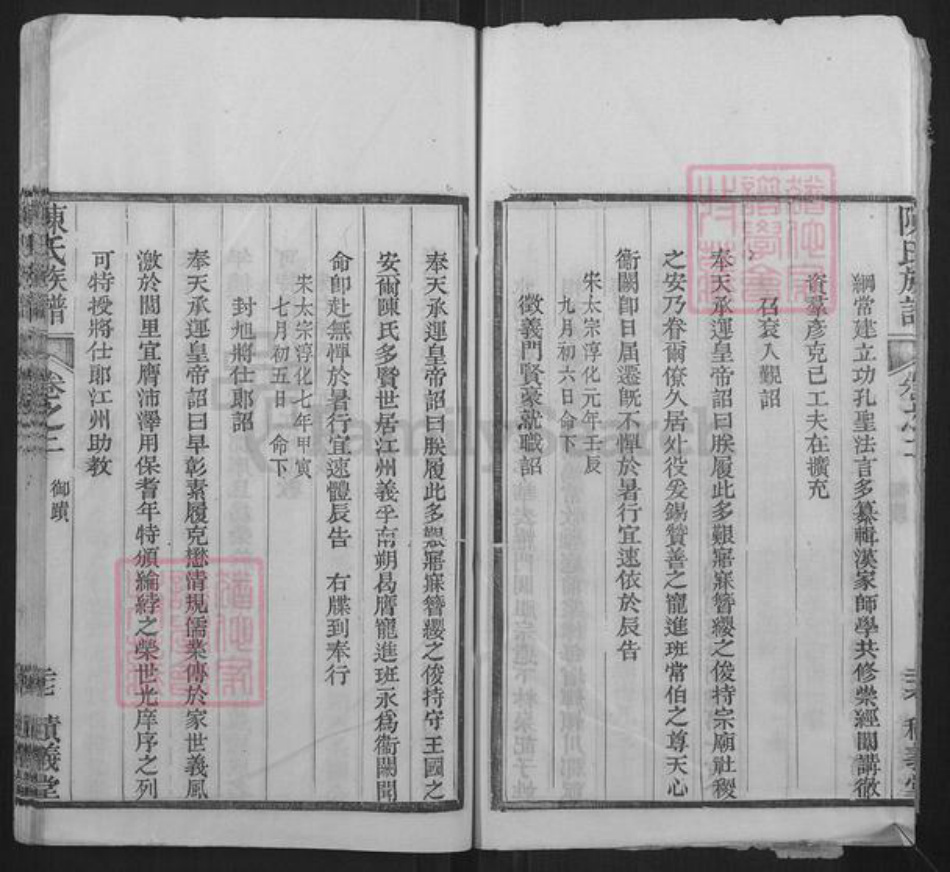 陳氏族譜
卷之二
積義堂
綱常建立功孔聖法言多纂輯漢家師學共修柴經闢講徵
資羣彥克己工夫在擴充
召袞入覲詔
奉天承運皇帝詔曰朕履此多艱寤寐簪纓之俊持宗廟社稷
之安乃眷爾僚久居外役爰錫贊善之寵進班常伯之尊天心
衛闕卽日屆遷旣不憚於暑行宜速依於辰告
宋太宗淳化元年壬辰
九月初六日命下
徵義門賢豪就職詔
奉天承運皇帝詔曰朕履此多艱寤寐簪纓之俊持守王國之
安爾陳氏多賢世居江州義孚南朔曷膺寵進班永爲衞闕聞
命卽赴無憚於暑行宜速體辰告 右牒到奉行
宋太宗淳化七年甲寅
七月初五日 命下
封旭將仕郎詔
奉天承運皇帝詔曰早彰素履克懋淸規儒業傳於家世義風
激於閭里宜膺沛澤用保耆年特頒綸綍之榮世光庠序之列
可特授將仕郎江州助教
陳氏族譜
卷之二
御蹟
積義堂
FamilySearch